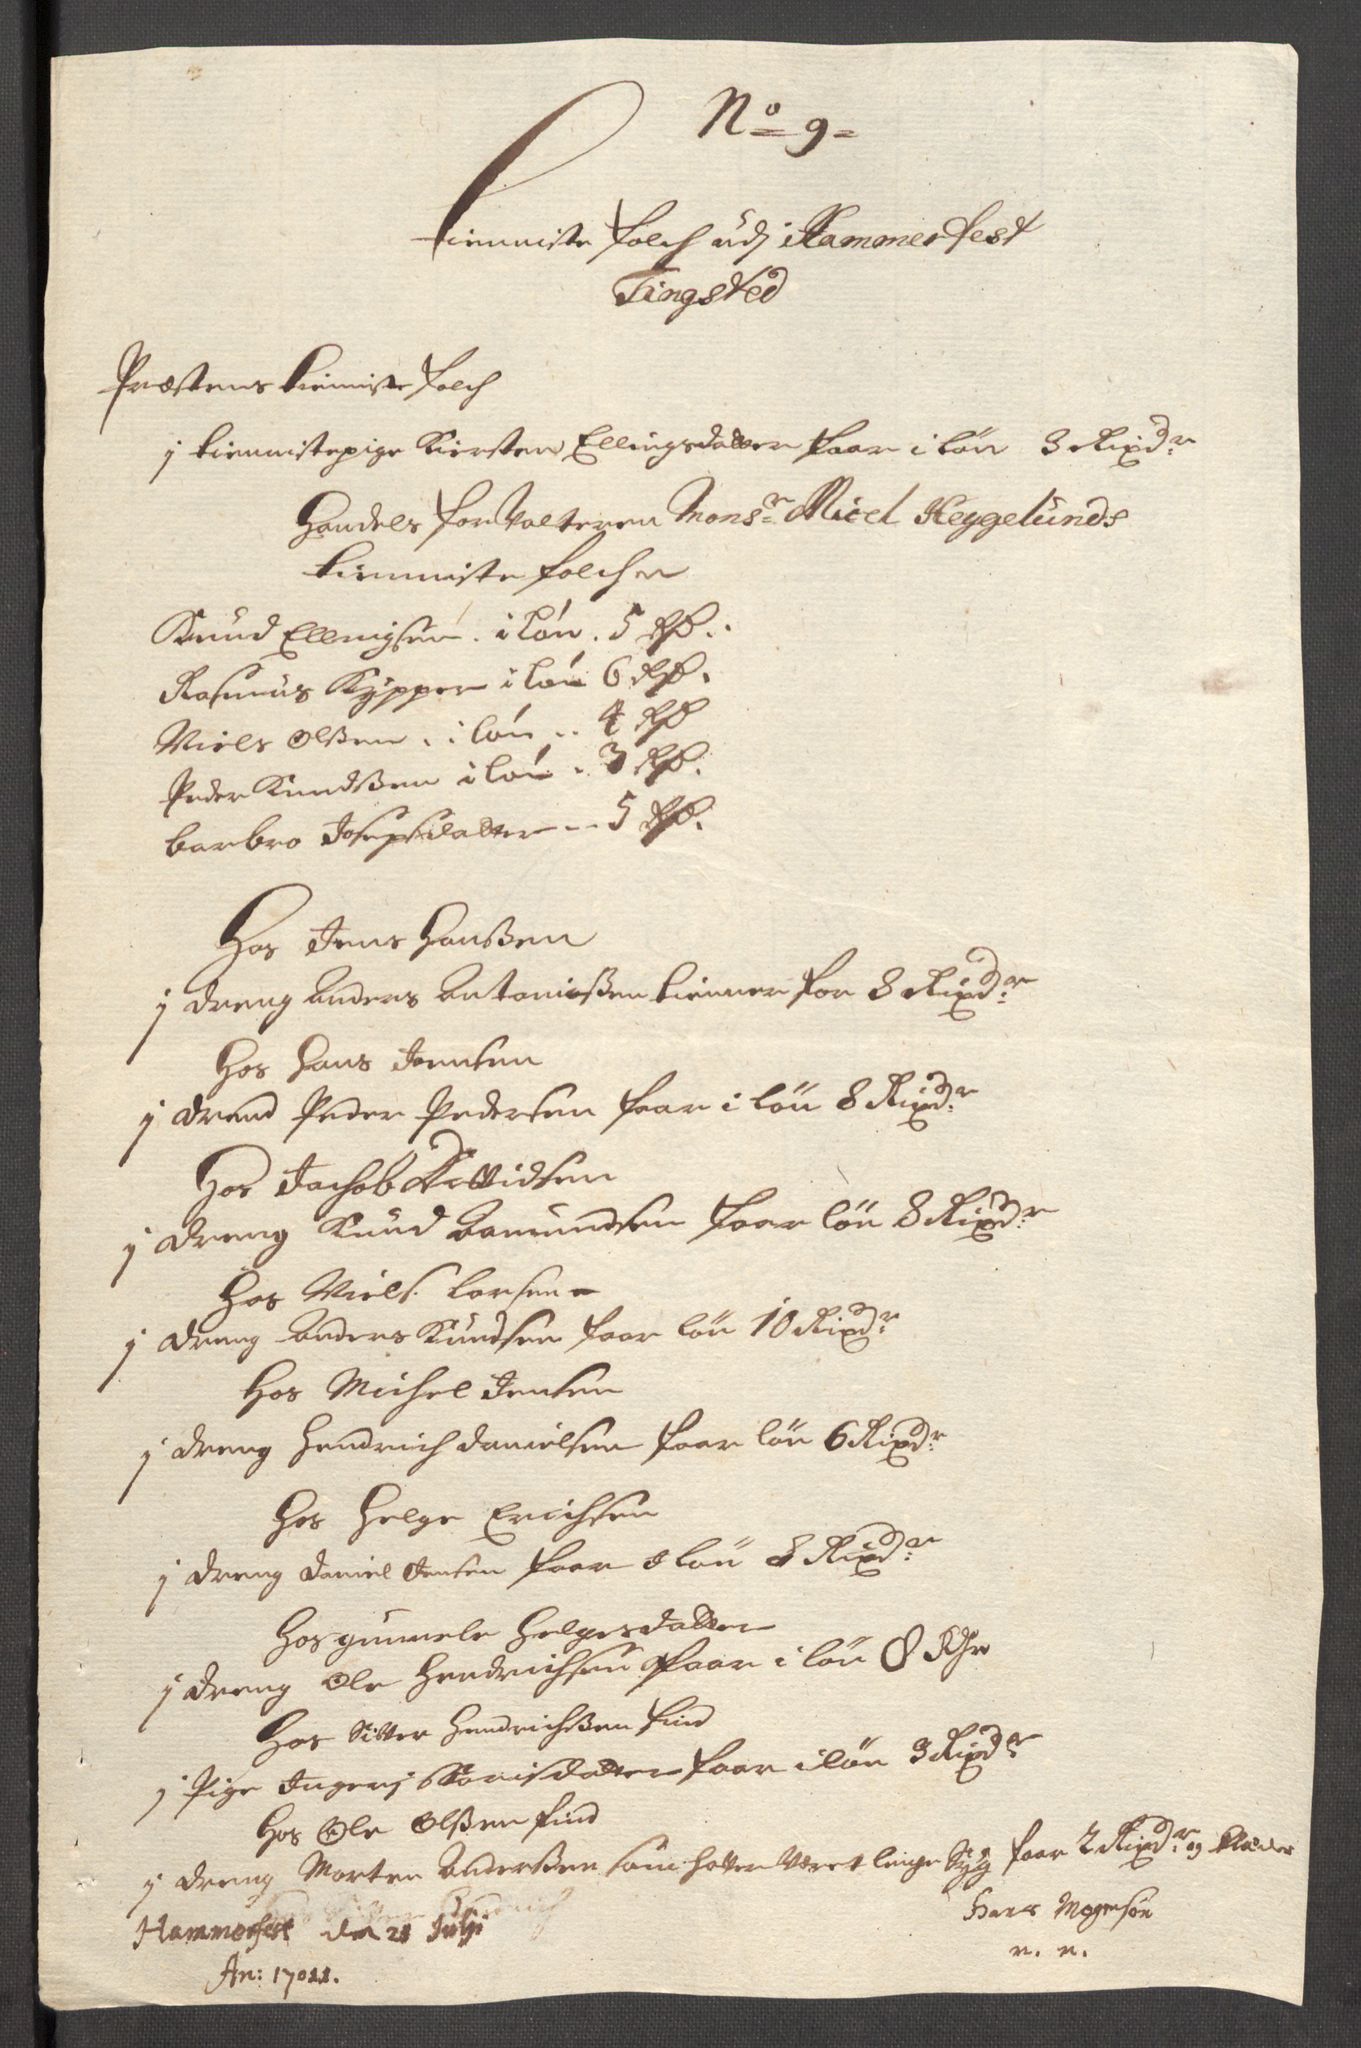 No 9
tienniste folch udj Hammerfest
Tingsted
Præstens tienniste folch
j tiennistepige Kirsten Ellingsdatter faar i lön 3 Rixdr
Handels forvalteren Monsr Nicel Heggelunds
tienniste folch
Knud Ellingsen i lön 5
Rasmus Kypper i lön 6
Niels Olßen i lön 4
Peder Knudßen i lön 3
barbro Josepsdatter 5
Hos Jens Hanßen
j dreng Anders Antonißen tienner for 8 Rixdr
Hos Hans Joensen
j dreng Peder Pedersen faar i lön 8 Rixdr
Hos Jachob
j dreng Knud Amundsen faar lön 8 Rixdr
Hos Niels Larsen
j dreng Anders Knudsen faar lön 10 Rixdr
Hos Michel Jensen
j dreng Hendrich Danielsen faar lön 6 Rixdr
Hos Helge Erichsen
j dreng Daniel Jensen faar i lön 8 Rixdr
Hos gunnele Helgesdatter
j dreng Ole Hendrichsen faar i lön 8 Rdr
Hos Hendrichßen find
j Pige Ingerj faar i lön 3 Rixdr
Hos Ole Olßen find
j dreng Morten Anderßen som hafver Været lenge Syg faar 2 Rixdr og klæder
Hans Mogensön
Hammerfest den 21 Julij
An: 1701